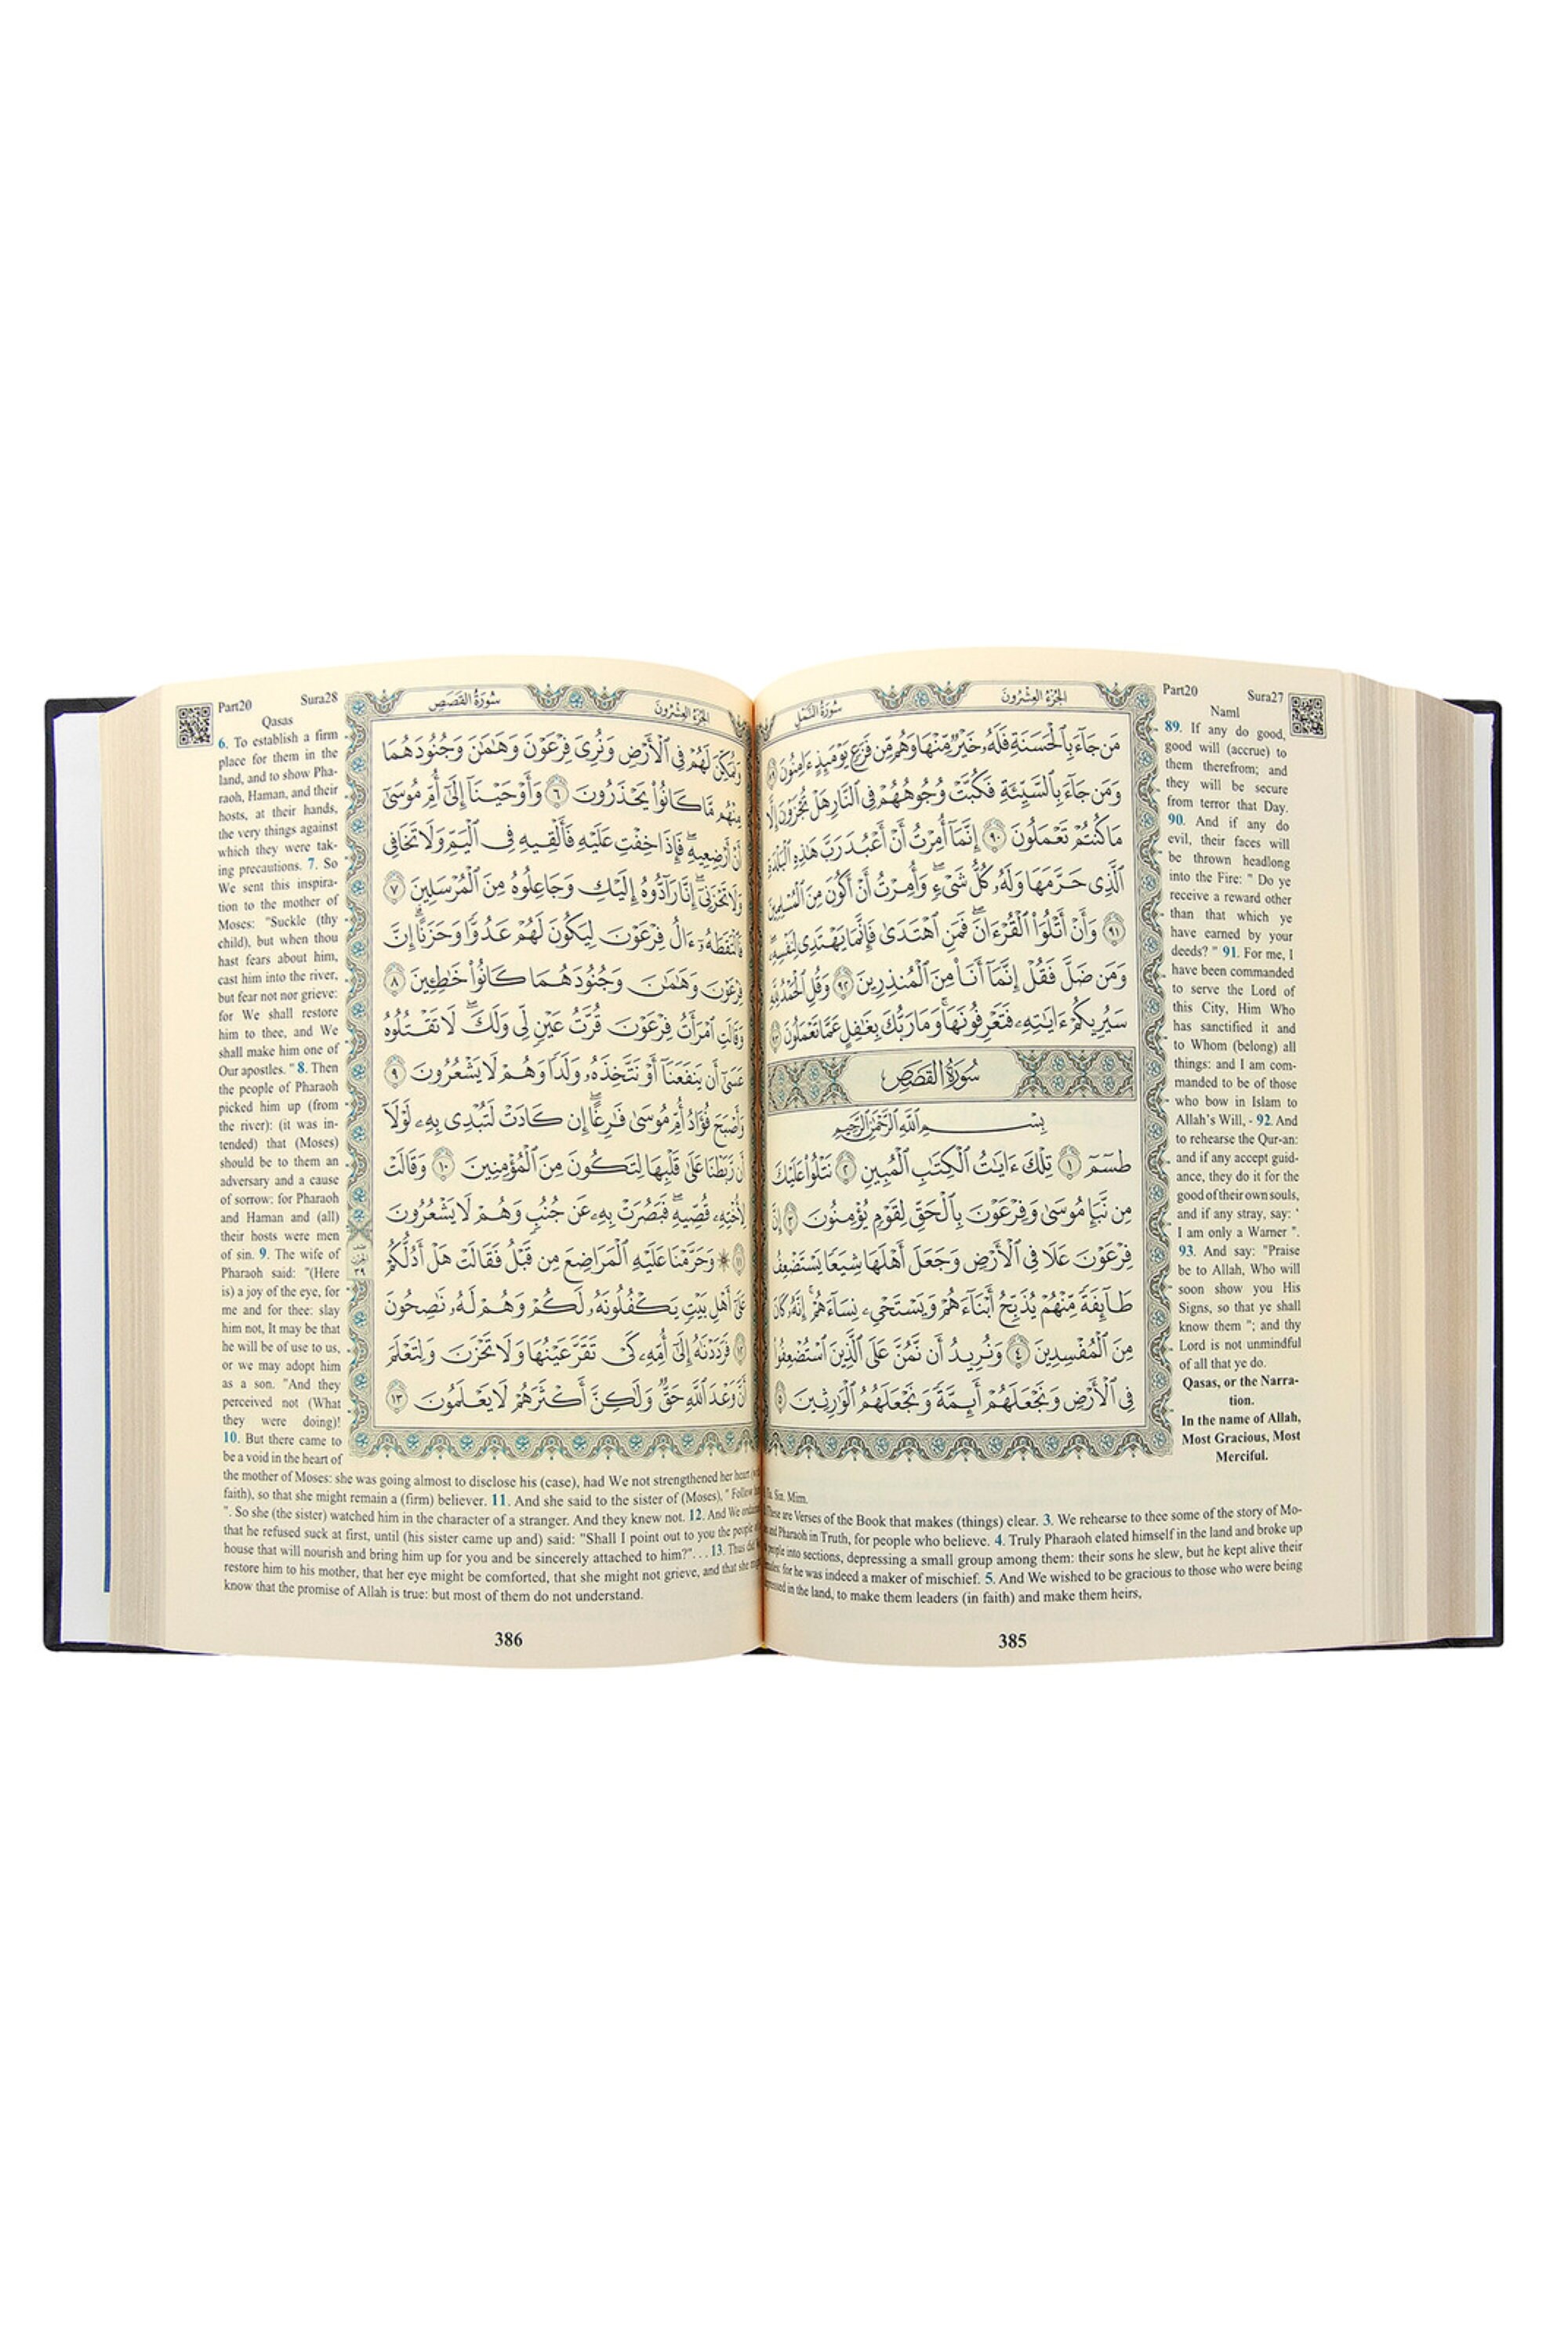 Part20
Sura27
الجُزْءُ العِشْرُونَ
سُورَةُ النَّمْلِ
Naml
مَن جَآءَ بِٱلْحَسَنَةِ فَلَهُۥ خَيْرٌ مِّنْهَا وَهُم مِّن فَزَعٍ يَوْمَئِذٍ ءَامِنُونَ ٨٩
وَمَن جَآءَ بِٱلسَّيِّئَةِ فَكُبَّتْ وُجُوهُهُمْ فِى ٱلنَّارِ هَلْ تُجْزَوْنَ إِلَّا
مَا كُنتُمْ تَعْمَلُونَ ٩٠ إِنَّمَآ أُمِرْتُ أَنْ أَعْبُدَ رَبَّ هَٰذِهِ ٱلْبَلْدَةِ
ٱلَّذِى حَرَّمَهَا وَلَهُۥ كُلُّ شَىْءٍ ۖ وَأُمِرْتُ أَنْ أَكُونَ مِنَ ٱلْمُسْلِمِينَ
٩١ وَأَنْ أَتْلُوَا۟ ٱلْقُرْءَانَ ۖ فَمَنِ ٱهْتَدَىٰ فَإِنَّمَا يَهْتَدِى لِنَفْسِهِۦ ۖ
وَمَن ضَلَّ فَقُلْ إِنَّمَآ أَنَا۠ مِنَ ٱلْمُنذِرِينَ ٩٢ وَقُلِ ٱلْحَمْدُ لِلَّهِ
سَيُرِيكُمْ ءَايَٰتِهِۦ فَتَعْرِفُونَهَا ۚ وَمَا رَبُّكَ بِغَٰفِلٍ عَمَّا تَعْمَلُونَ ٩٣
سُورَةُ القَصَصِ
بِسْمِ ٱللَّهِ ٱلرَّحْمَٰنِ ٱلرَّحِيمِ
طسٓمٓ ١ تِلْكَ ءَايَٰتُ ٱلْكِتَٰبِ ٱلْمُبِينِ ٢ نَتْلُوا۟ عَلَيْكَ
مِن نَّبَإِ مُوسَىٰ وَفِرْعَوْنَ بِٱلْحَقِّ لِقَوْمٍ يُؤْمِنُونَ ٣ إِنَّ
فِرْعَوْنَ عَلَا فِى ٱلْأَرْضِ وَجَعَلَ أَهْلَهَا شِيَعًا يَسْتَضْعِفُ
طَآئِفَةً مِّنْهُمْ يُذَبِّحُ أَبْنَآءَهُمْ وَيَسْتَحْىِۦ نِسَآءَهُمْ ۚ إِنَّهُۥ كَانَ
مِنَ ٱلْمُفْسِدِينَ ٤ وَنُرِيدُ أَن نَّمُنَّ عَلَى ٱلَّذِينَ ٱسْتُضْعِفُوا۟
فِى ٱلْأَرْضِ وَنَجْعَلَهُمْ أَئِمَّةً وَنَجْعَلَهُمُ ٱلْوَٰرِثِينَ ٥
89. If any do good,
good will (accrue) to
them therefrom; and
they will be secure
from terror that Day.
90. And if any do
evil, their faces will
be thrown headlong
into the Fire: " Do ye
receive a reward other
than that which ye
have earned by your
deeds? " 91. For me, I
have been commanded
to serve the Lord of
this City, Him Who
has sanctified it and
to Whom (belong) all
things: and I am com-
manded to be of those
who bow in Islam to
Allah's Will, - 92. And
to rehearse the Qur-an:
and if any accept guid-
ance, they do it for the
good of their own souls,
and if any stray, say: '
I am only a Warner ".
93. And say: "Praise
be to Allah, Who will
soon show you His
Signs, so that ye shall
know them "; and thy
Lord is not unmindful
of all that ye do.
Qasas, or the Narra-
tion.
In the name of Allah,
Most Gracious, Most
Merciful.
Ta. Sin. Mim.
These are Verses of the Book that makes (things) clear. 3. We rehearse to thee some of the story of Mo-
and Pharaoh in Truth, for people who believe. 4. Truly Pharaoh elated himself in the land and broke up
people into sections, depressing a small group among them: their sons he slew, but he kept alive their
for he was indeed a maker of mischief. 5. And We wished to be gracious to those who were being
in the land, to make them leaders (in faith) and make them heirs,
385
Part20
Sura28
سُورَةُ القَصَصِ
الجُزْءُ العِشْرُونَ
Qasas
وَنُمَكِّنَ لَهُمْ فِى ٱلْأَرْضِ وَنُرِىَ فِرْعَوْنَ وَهَٰمَٰنَ وَجُنُودَهُمَا
مِنْهُم مَّا كَانُوا۟ يَحْذَرُونَ ٦ وَأَوْحَيْنَآ إِلَىٰٓ أُمِّ مُوسَىٰٓ
أَنْ أَرْضِعِيهِ ۖ فَإِذَا خِفْتِ عَلَيْهِ فَأَلْقِيهِ فِى ٱلْيَمِّ وَلَا تَخَافِى
وَلَا تَحْزَنِىٓ ۖ إِنَّا رَآدُّوهُ إِلَيْكِ وَجَاعِلُوهُ مِنَ ٱلْمُرْسَلِينَ ٧
فَٱلْتَقَطَهُۥٓ ءَالُ فِرْعَوْنَ لِيَكُونَ لَهُمْ عَدُوًّا وَحَزَنًا ۗ إِنَّ
فِرْعَوْنَ وَهَٰمَٰنَ وَجُنُودَهُمَا كَانُوا۟ خَٰطِـِٔينَ ٨
وَقَالَتِ ٱمْرَأَتُ فِرْعَوْنَ قُرَّتُ عَيْنٍ لِّى وَلَكَ ۖ لَا تَقْتُلُوهُ
عَسَىٰٓ أَن يَنفَعَنَآ أَوْ نَتَّخِذَهُۥ وَلَدًا وَهُمْ لَا يَشْعُرُونَ ٩
وَأَصْبَحَ فُؤَادُ أُمِّ مُوسَىٰ فَٰرِغًا ۖ إِن كَادَتْ لَتُبْدِى بِهِۦ لَوْلَآ
أَن رَّبَطْنَا عَلَىٰ قَلْبِهَا لِتَكُونَ مِنَ ٱلْمُؤْمِنِينَ ١٠ وَقَالَتْ
لِأُخْتِهِۦ قُصِّيهِ ۖ فَبَصُرَتْ بِهِۦ عَن جُنُبٍ وَهُمْ لَا يَشْعُرُونَ
١١ ۞ وَحَرَّمْنَا عَلَيْهِ ٱلْمَرَاضِعَ مِن قَبْلُ فَقَالَتْ هَلْ أَدُلُّكُمْ
عَلَىٰٓ أَهْلِ بَيْتٍ يَكْفُلُونَهُۥ لَكُمْ وَهُمْ لَهُۥ نَٰصِحُونَ
١٢ فَرَدَدْنَٰهُ إِلَىٰٓ أُمِّهِۦ كَىْ تَقَرَّ عَيْنُهَا وَلَا تَحْزَنَ وَلِتَعْلَمَ
أَنَّ وَعْدَ ٱللَّهِ حَقٌّ وَلَٰكِنَّ أَكْثَرَهُمْ لَا يَعْلَمُونَ ١٣
٣٩
6. To establish a firm
place for them in the
land, and to show Pha-
raoh, Haman, and their
hosts, at their hands,
the very things against
which they were tak-
ing precautions. 7. So
We sent this inspira-
tion to the mother of
Moses: "Suckle (thy
child), but when thou
hast fears about him,
cast him into the river,
but fear not nor grieve:
for We shall restore
him to thee, and We
shall make him one of
Our apostles. " 8. Then
the people of Pharaoh
picked him up (from
the river): (it was in-
tended) that (Moses)
should be to them an
adversary and a cause
of sorrow: for Pharaoh
and Haman and (all)
their hosts were men
of sin. 9. The wife of
Pharaoh said: "(Here
is) a joy of the eye, for
me and for thee: slay
him not, It may be that
he will be of use to us,
or we may adopt him
as a son. "And they
perceived not (What
they were doing)!
10. But there came to
be a void in the heart of
the mother of Moses: she was going almost to disclose his (case), had We not strengthened her heart
faith), so that she might remain a (firm) believer. 11. And she said to the sister of (Moses), " Follow
". So she (the sister) watched him in the character of a stranger. And they knew not. 12. And We
that he refused suck at first, until (his sister came up and) said: "Shall I point out to you the people
house that will nourish and bring him up for you and be sincerely attached to him?"... 13. Thus did
restore him to his mother, that her eye might be comforted, that she might not grieve, and that she
know that the promise of Allah is true: but most of them do not understand.
386